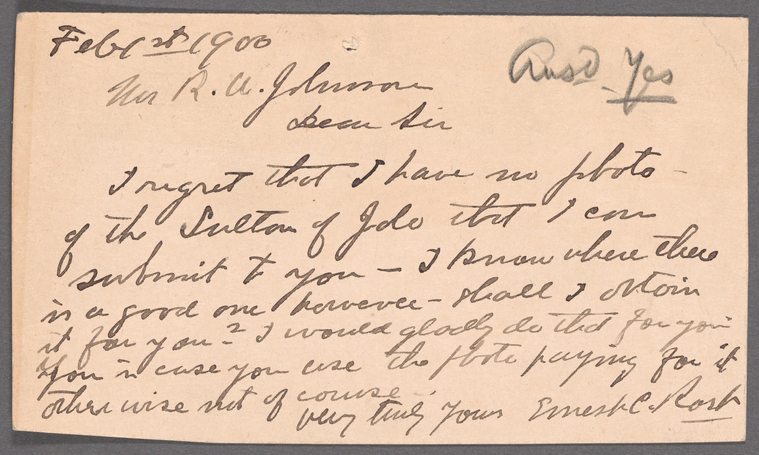 Feby 1st 1900
Ansd. Yes
Mr R. U. Johnson
Dear Sir
I regret that I have no photo-
of the Sultan of Jolo that I can
submit to you - I know where there
is a good one however - shall I obtain
it for you? I would gladly do that for you
You in case you use the photo paying for it
otherwise not of course.
Very truly yours Ernest C. Rost